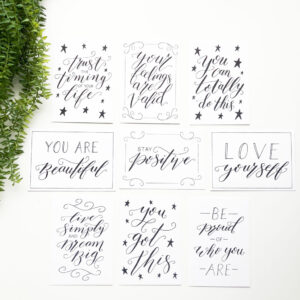 trust
the
timing
OF YOUR
life
Your
feelings
are
Valid.
You
can
totally
do this.
YOU ARE
Beautiful
STAY
Positive
LOVE
yourself
live
simply
AND
Dream
Big
you
got
this
-BE-
proud
-OF-
who you
-ARE-